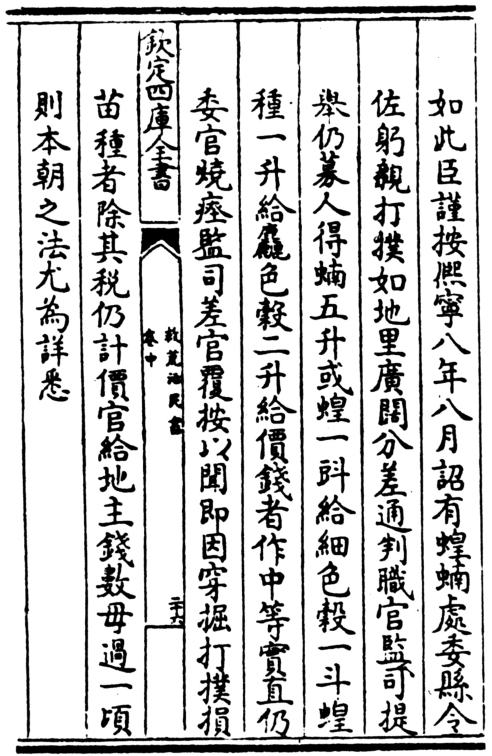 如此臣謹按熈寧八年八月詔有蝗蝻處委縣令
佐躬親打撲如地里廣闊分差通判職官監司提
舉仍募人得蝻五升或蝗一㪷給細色穀一斗蝗
種一升給麄色穀二升給價錢者作中等實直仍
委官燒瘞監司差官覆按以聞即因穿掘打撲損
欽定四庫全書
救荒活民書
卷中
二十六
苗種者除其税仍計價官給地主錢數毋過一頃
則本朝之法尤為詳悉